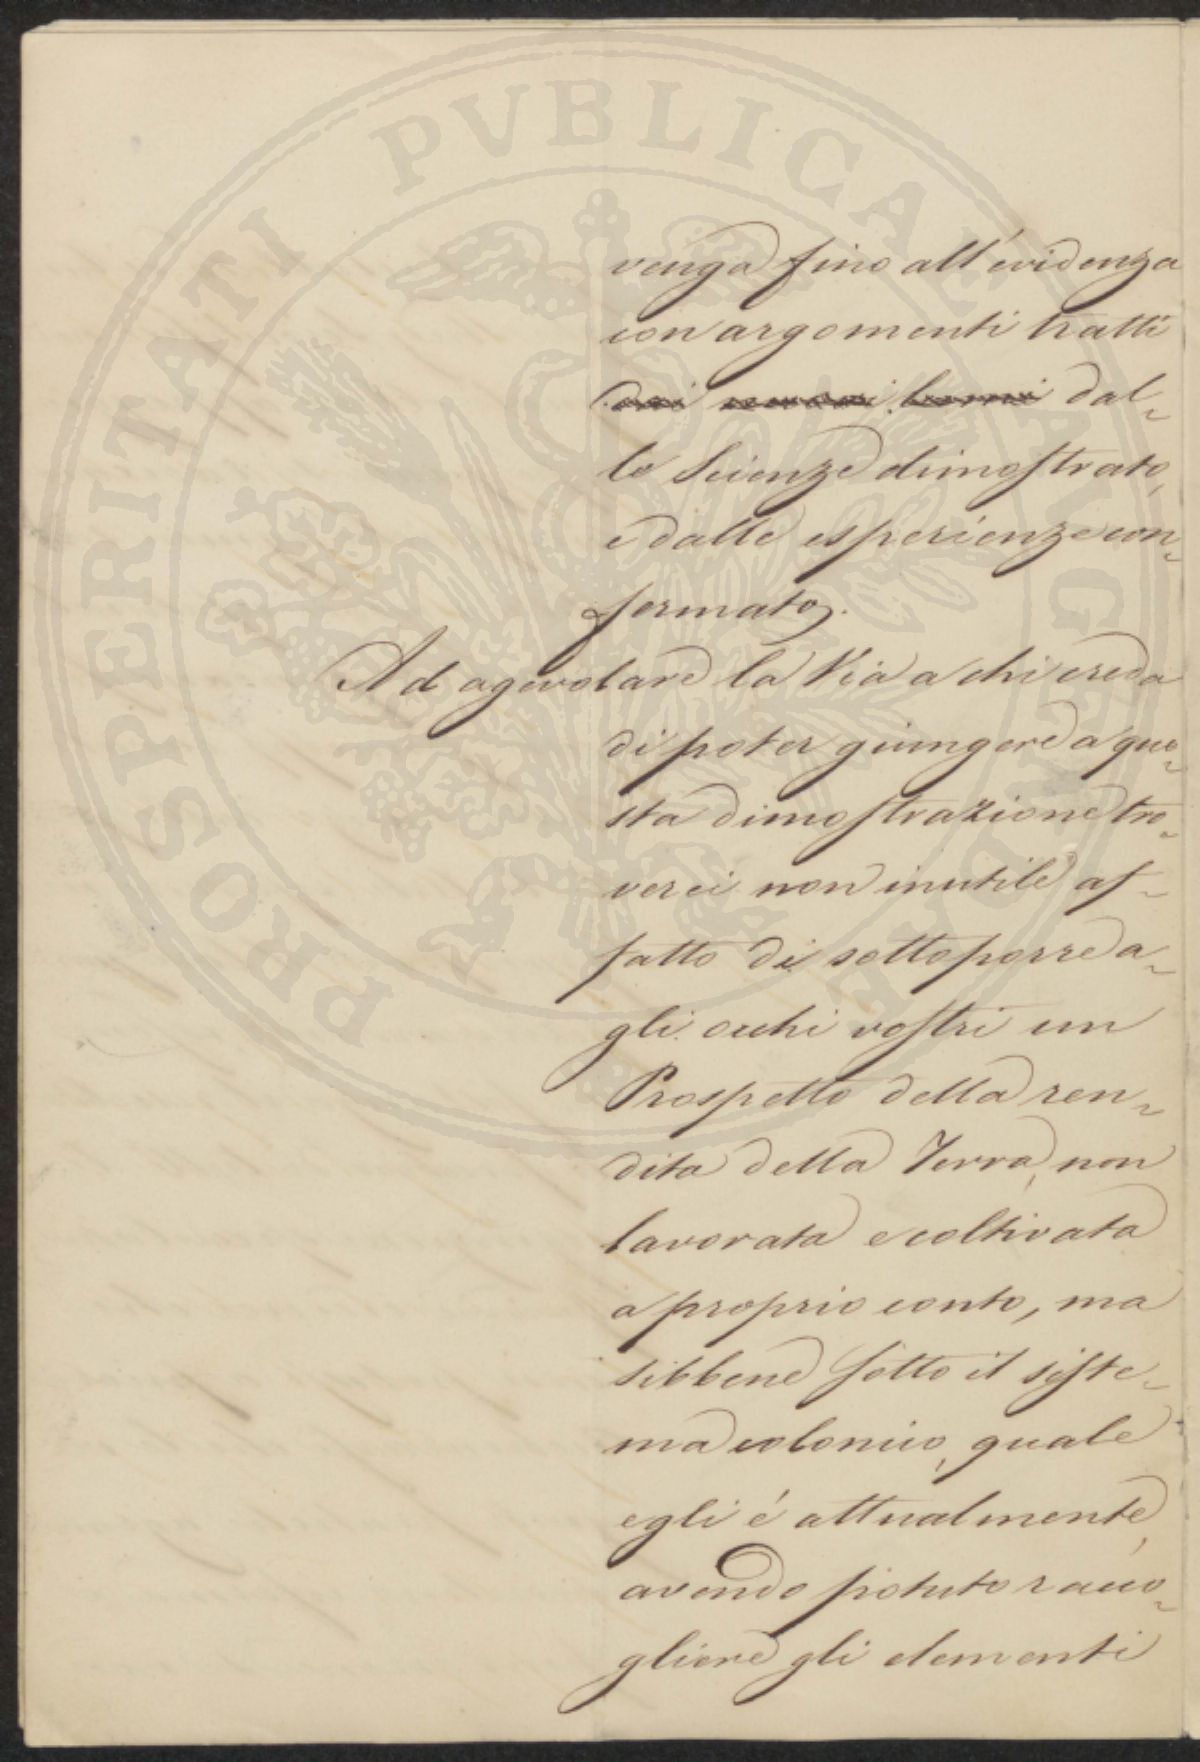 PROSPERITATI PVBLICAE AVGENDAE
venga fino all'evidenza
con argomenti tratti
dai dal-
le Scienze dimostrato,
e dalle esperienze con-
fermato.
Ad agevolare la Via a chi creda
di poter giungere a que-
sta dimostrazione tro-
verei non inutile af-
fatto di sottoporre a-
gli occhi vostri un
Prospetto della ren-
dita della Terra, non
lavorata e coltivata
a proprio conto, ma
sibbene sotto il siste-
ma colonico, quale
egli é attualmente,
avendo potuto racco-
gliere gli elementi